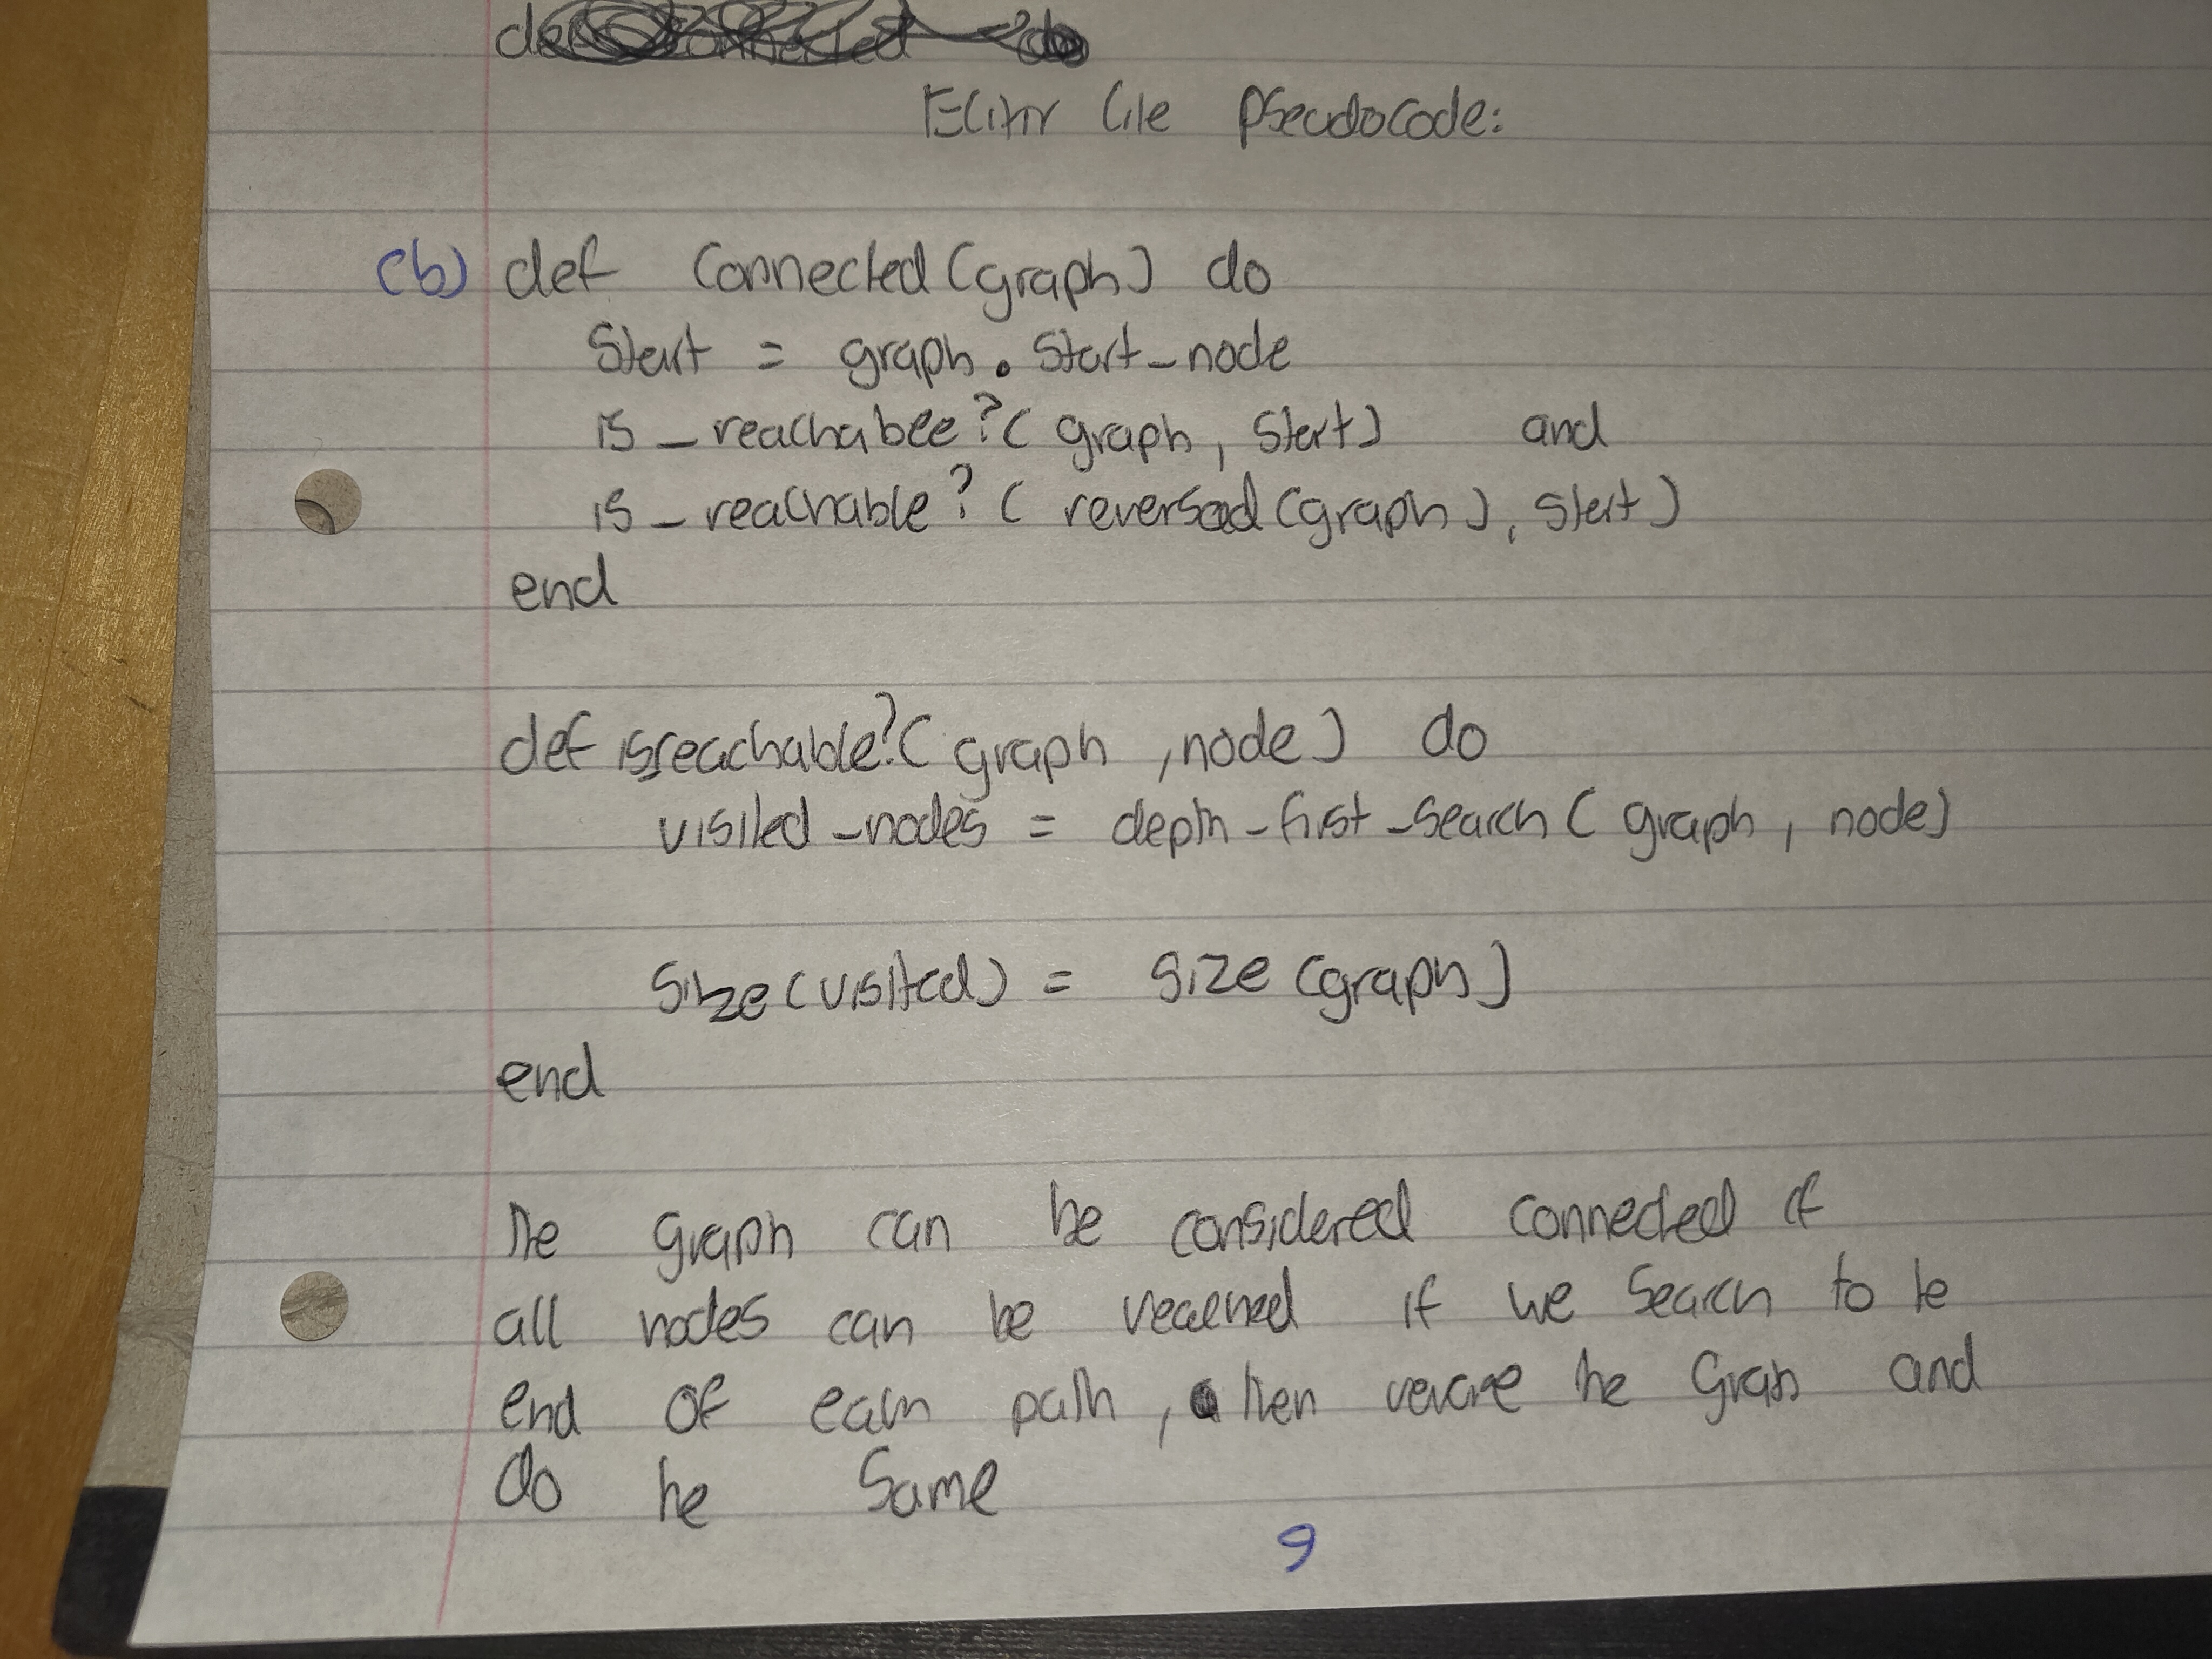 Elixir like pseudocode:
(b) def connected(graph) do
start = graph.start_node
is_reachable?(graph, start) and
is_reachable?(reversed(graph), start)
end
def is_reachable?(graph, node) do
visited_nodes = depth-first-search(graph, node)
size(visited) = size(graph)
end
The graph can be considered connected if
all nodes can be reached if we search to te
end of each path, then reverse he Graph and
do he same
9